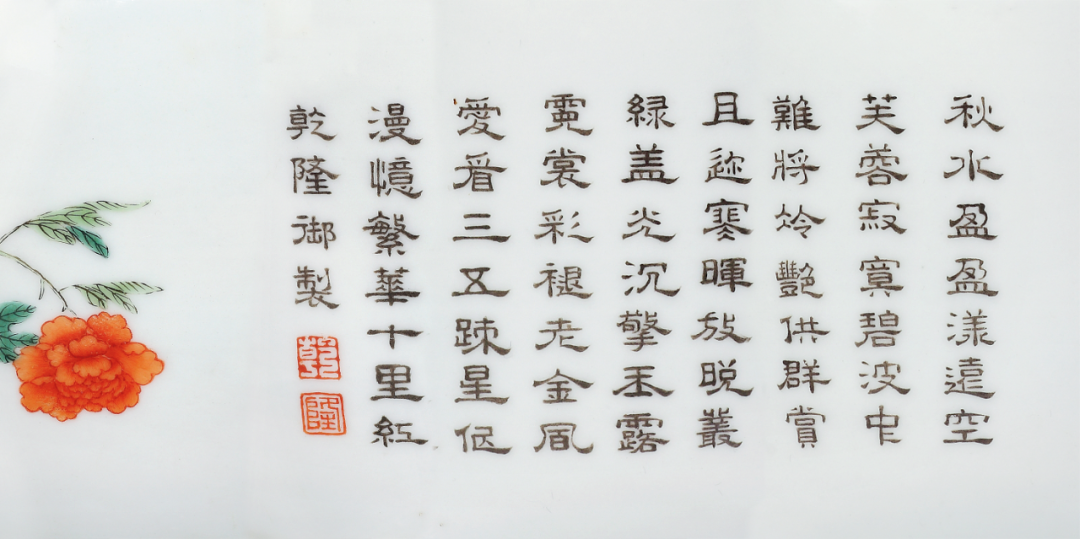 秋水盈盈漾遠空
芙蓉寂寞碧波中
難將冷艷供群賞
且迩寒暉放晚叢
緑盖光沉擎玉露
霓裳彩褪老金風
愛看三五疎星低
漫憶繁華十里紅
乾隆御製
乾
隆